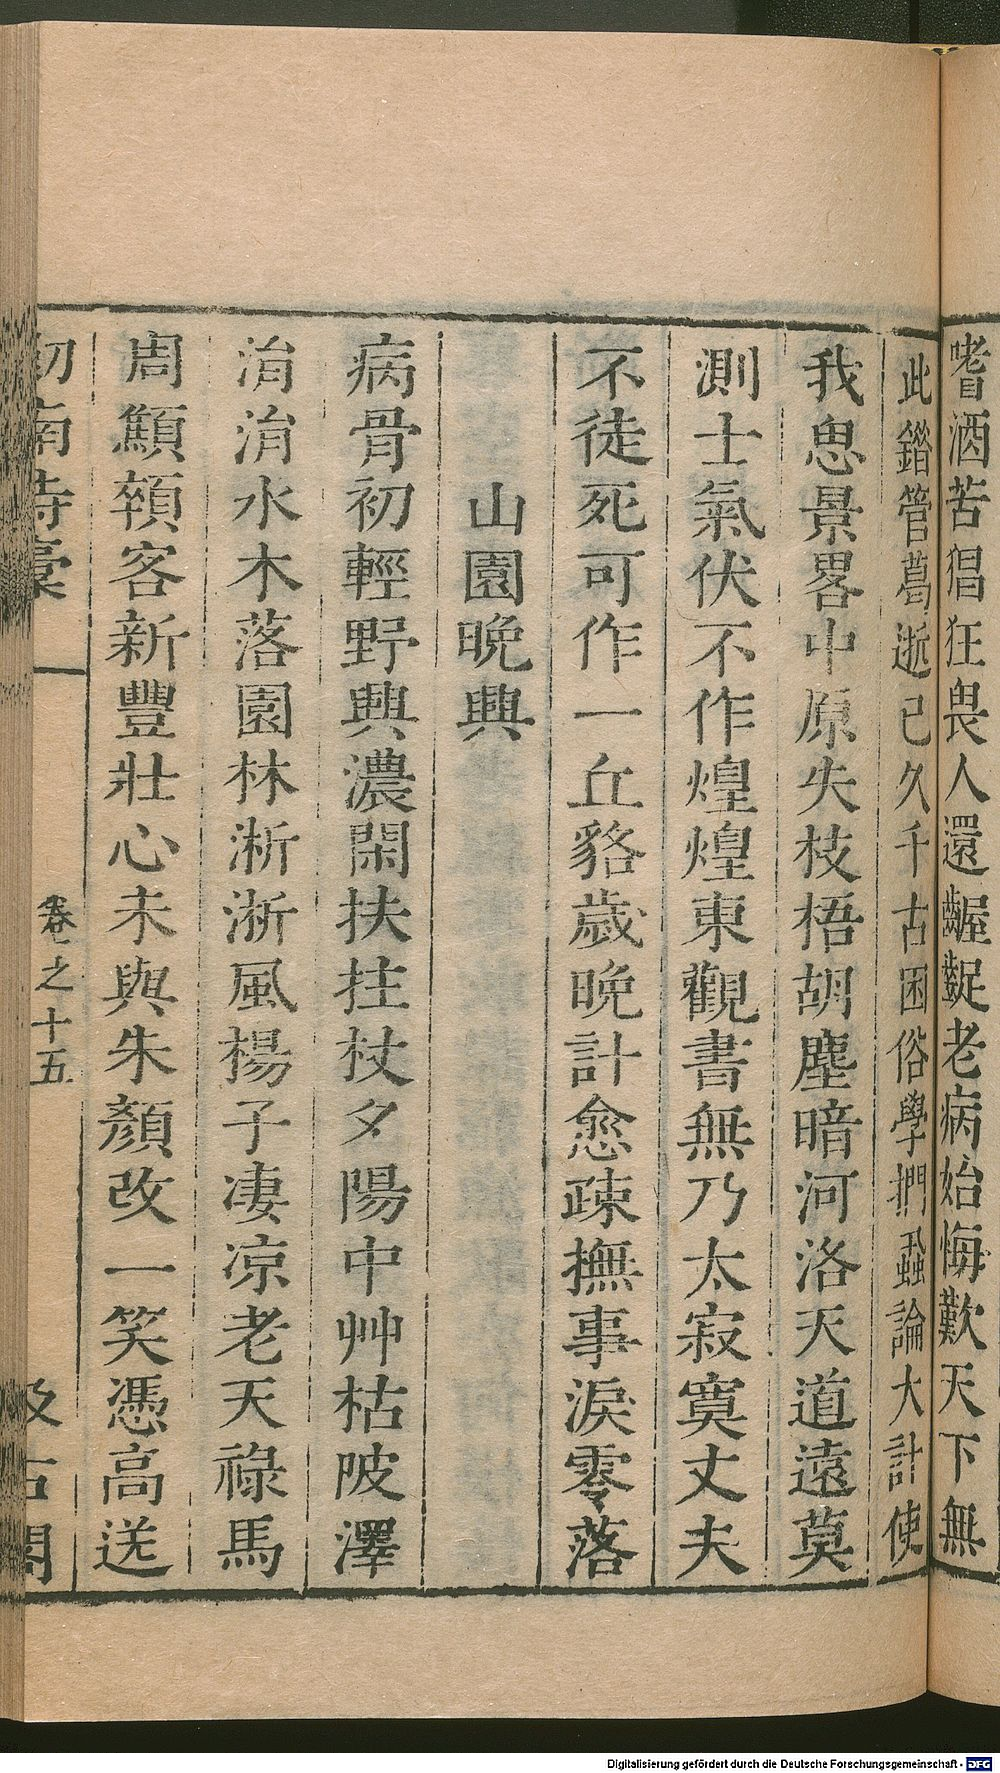 嗜酒苦猖狂畏人還齷齪老病始悔歎天下無
此錙管葛逝已久千古困俗學捫蝨論大計使
我思景畧中原失枝梧胡塵暗河洛天道遠莫
測士氣伏不作煌煌東觀書無乃太寂寞丈夫
不徒死可作一丘貉歲晚計愈疎撫事淚零落
山園晩興
病骨初輕野興濃閑扶拄杖夕陽中艸枯陂澤
涓涓水木落園林淅淅風楊子凄凉老天祿馬
周顦顇客新豐壯心未與朱顏改一笑憑高送
劍南詩稾
卷之十五
汲古閣
Digitalisierung gefördert durch die Deutsche Forschungsgemeinschaft - DFG